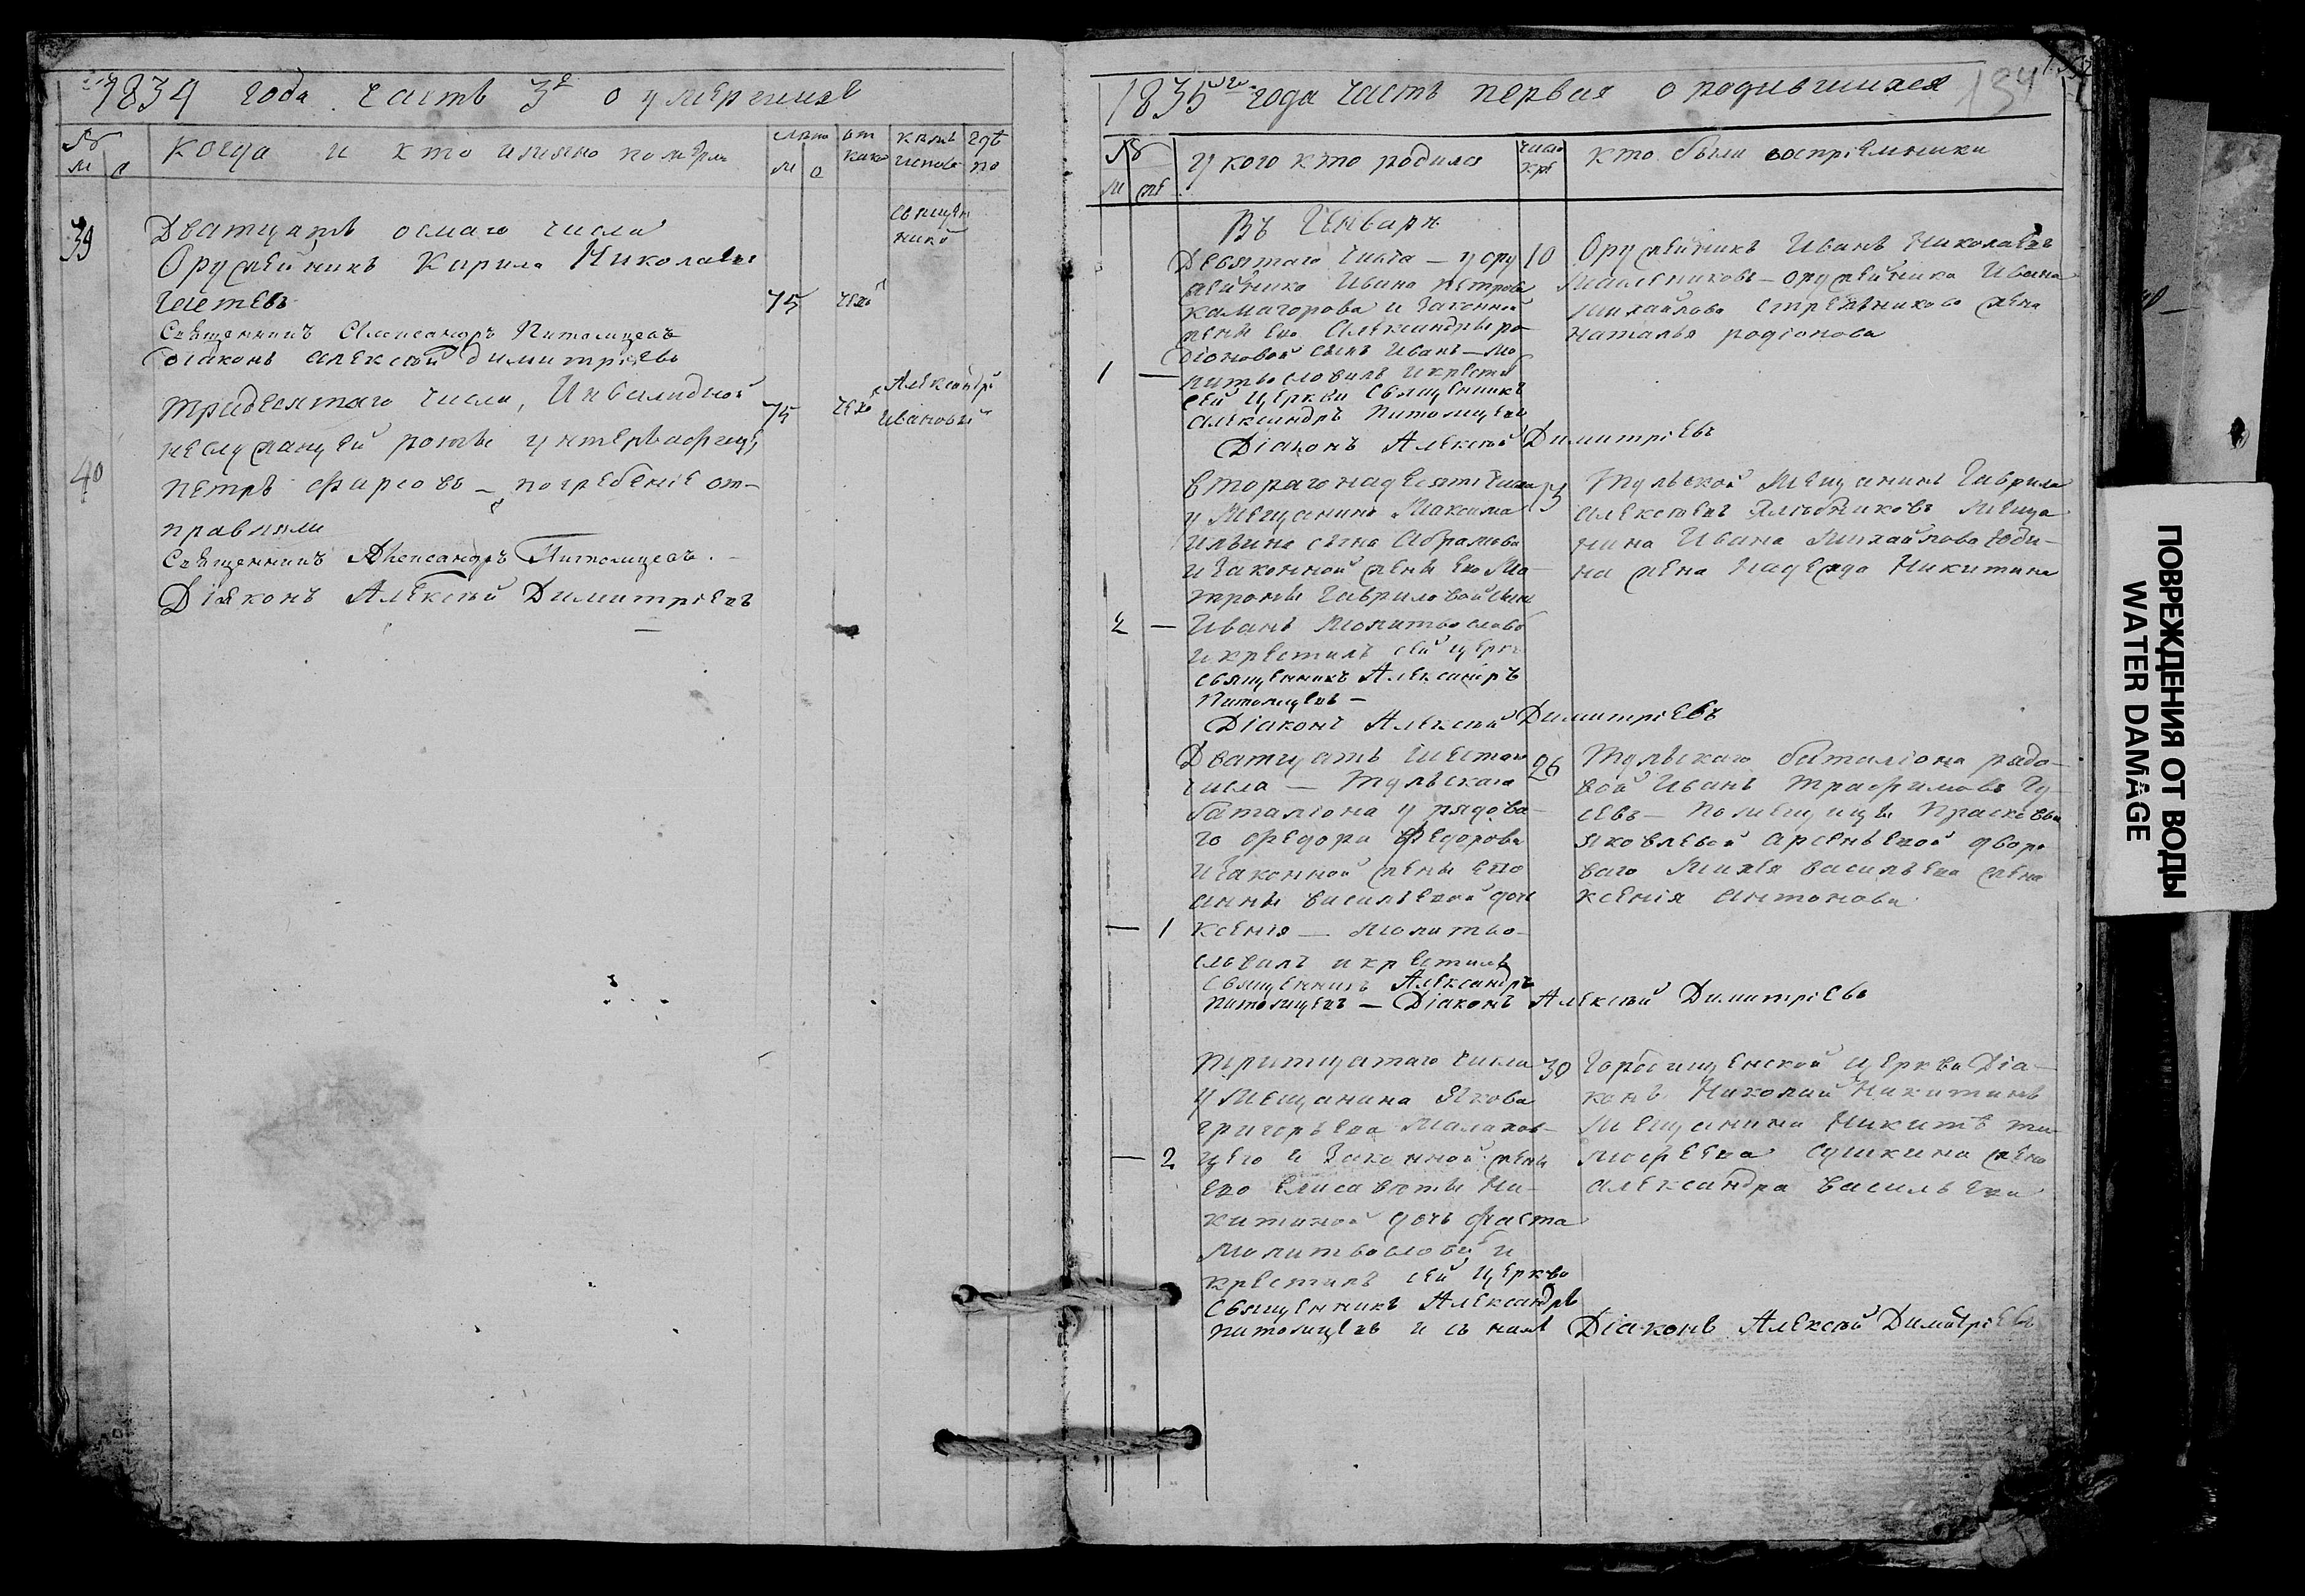 1834 года часть 3я о умершихъ
№ м о
когда и кто имяно померли
лѣта м о
отъ чего
кѣмъ исповѣ
гдѣ по
39
Дватцать осмаго числа
священ
нико
Оружейникъ Кирила Николаевъ
75
Священникъ Александръ Питомцевъ
Діаконъ Алексѣй Димитріевъ
Тридесятаго числа, Инвалидной
75
Ивановы
неслужащей роты унтеръ афице
40
Петръ
погребеніе от-
правляли
Священникъ Александръ Питомцевъ.
Діяконъ Алексѣй Димитріевъ
1835го года часть первая о родившихся
134
№ м же
у кого кто родился
число кре
кто были воспріемники
Въ Генварѣ
Девятаго числа — у ору
жейника Ивана Петрова
и законной
жены его Александры Ро
діоновой сынъ Иванъ — мо
1 —
литвословилъ и крести
сей церкви Священникъ
Александръ Питомцевъ
Діаконъ Алексѣй Димитріевъ
10
Оружейникъ Иванъ Николаевъ
Масленниковъ — оружейника Ивана
Михайлова Стрельникова жена
Наталья Родіонова
втораго надесять числа
у Мещанина Максима
Ильина сына Абрамова
и законной жены его Ма-
троны Гавриловой сынъ
2 —
Иванъ Молитвослови
и крестилъ сей церкви
священникъ Александръ
Питомцевъ —
Діаконъ Алексѣй Димитріевъ
13
Тульской Мещанинъ Гаврила
Алексѣевъ Меща
нина Ивана Михайлова Юди-
на жена Надежда Никитина
Дватцать шестаго
числа — Тульскаго
баталіона у рядова-
го Федора Федорова
и законной жены его
Анны Васильевой дочь
— 1
Ксенія — Молитво-
словилъ и крестилъ
Священникъ Александръ
Питомцевъ — Діаконъ Алексѣй Димитріевъ
26
Тульскаго баталіона рядо-
вой Иванъ Трафимовъ Гу-
севъ — Помещицы Прасковьи
Яковлевой Арсеньевой дворо
ваго Михея Васильева жена
Ксенія Антонова
Тритцатаго числа
у Мещанина Якова
Григорьева
— 2
и законной жены
его Елисаветы Ни-
китиной дочь
Молитвослови и
крестилъ сей церкви
Священникъ Александръ
Питомцевъ и съ нимъ Діаконъ Алексѣй Димитріевъ
30
Городищенской церкви Діа-
конъ Николай Никитинъ
Мещанина Никиты Ти-
мофеева Сушкина жена
Александра Васильева
ПОВРЕЖДЕНИЯ ОТ ВОДЫ
WATER DAMAGE